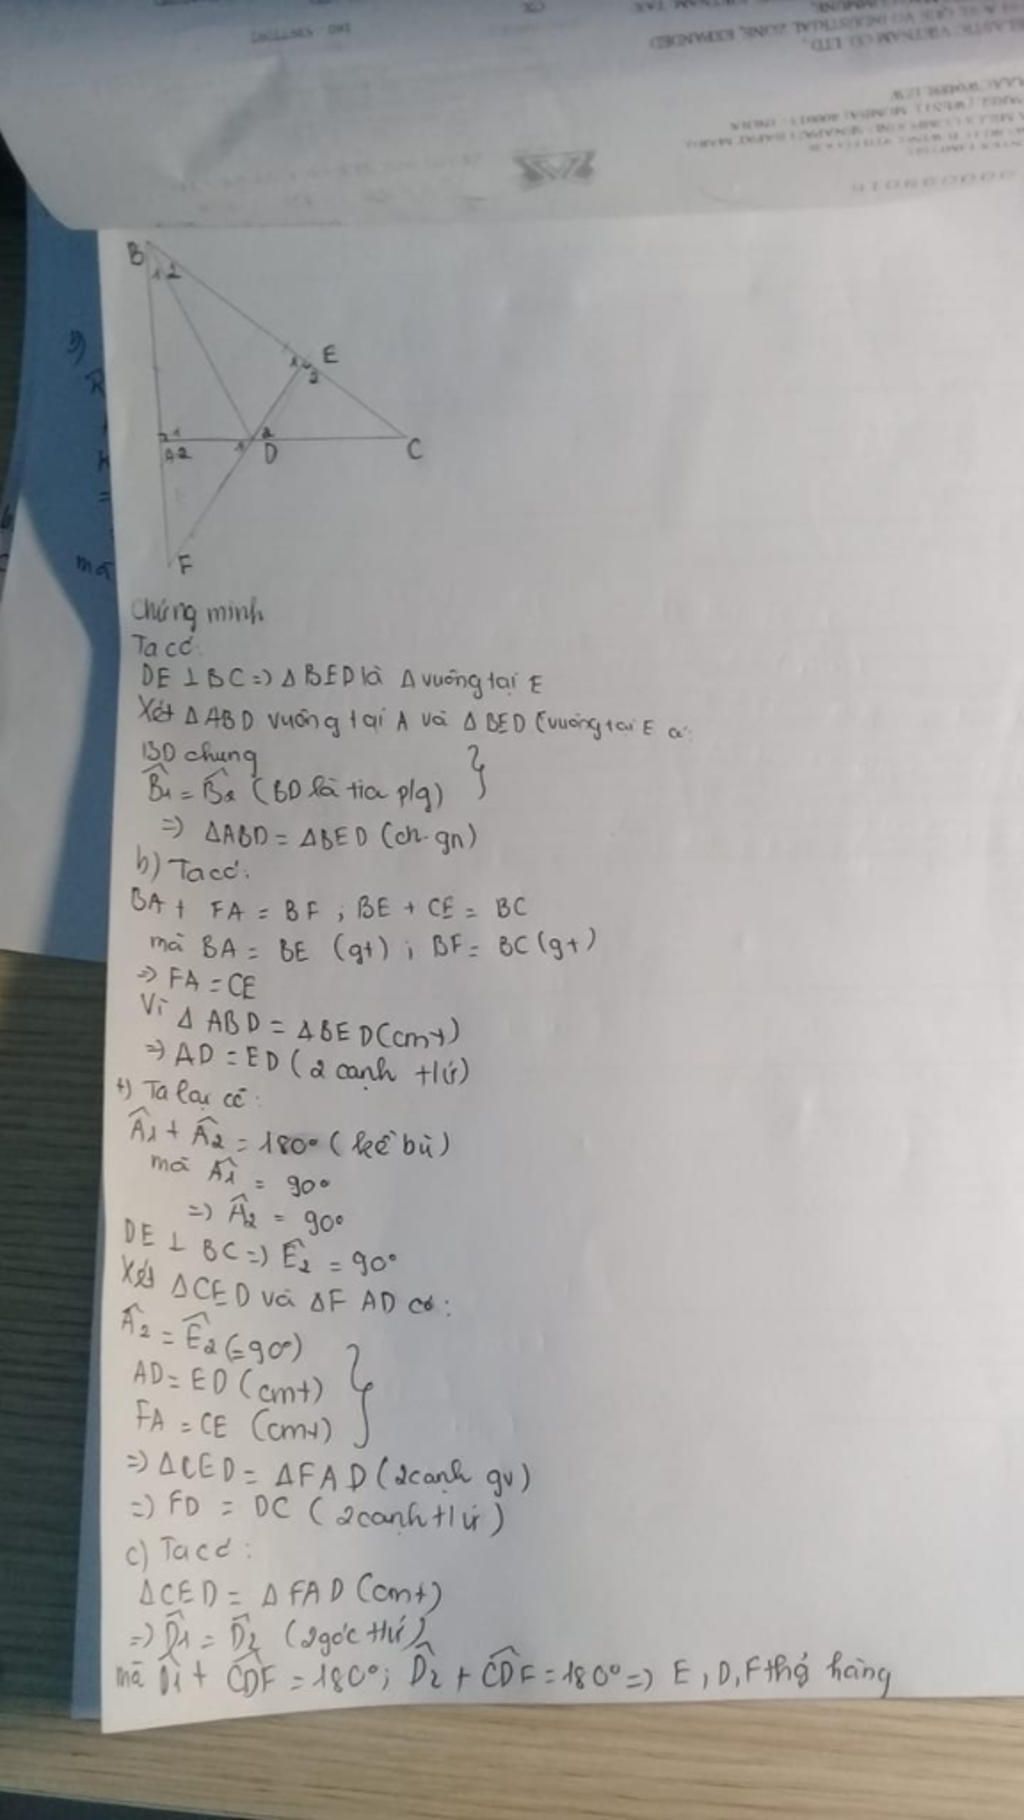 PLASTIC VIETNAM CO. LTD.,
INDUSTRIAL ZONE, EXPANDED
B
1 2
E
1
2
1
A 2
1
2
D
C
F
Chứng minh
Ta có:
DE ⊥ BC => Δ BED là Δ vuông tại E
Xét Δ ABD vuông tại A và Δ BED (vuông tại E có:
BD chung
B̂1 = B̂2 (BD là tia p/g) }
=> ΔABD = ΔBED (ch-gn)
b) Ta có:
BA + FA = BF ; BE + CE = BC
mà BA = BE (gt) ; BF = BC (gt)
=> FA = CE
Vì Δ ABD = ΔBED (cmt)
=> AD = ED (2 cạnh t/ứ)
+) Ta lại có:
Â1 + Â2 = 180° (kề bù)
mà Â1 = 90°
=> Â2 = 90°
DE ⊥ BC => Ê2 = 90°
Xét ΔCED và ΔFAD có:
Â2 = Ê2 (=90°)
AD = ED (cmt) }
FA = CE (cmt)
=> ΔCED = ΔFAD (2 cạnh gv)
=> FD = DC (2 cạnh t/ứ)
c) Ta có:
ΔCED = ΔFAD (cmt)
=> D̂1 = D̂2 (2 góc t/ứ)
mà D̂1 + CDF = 180°; D̂2 + CDF = 180° => E, D, F thẳ hàng